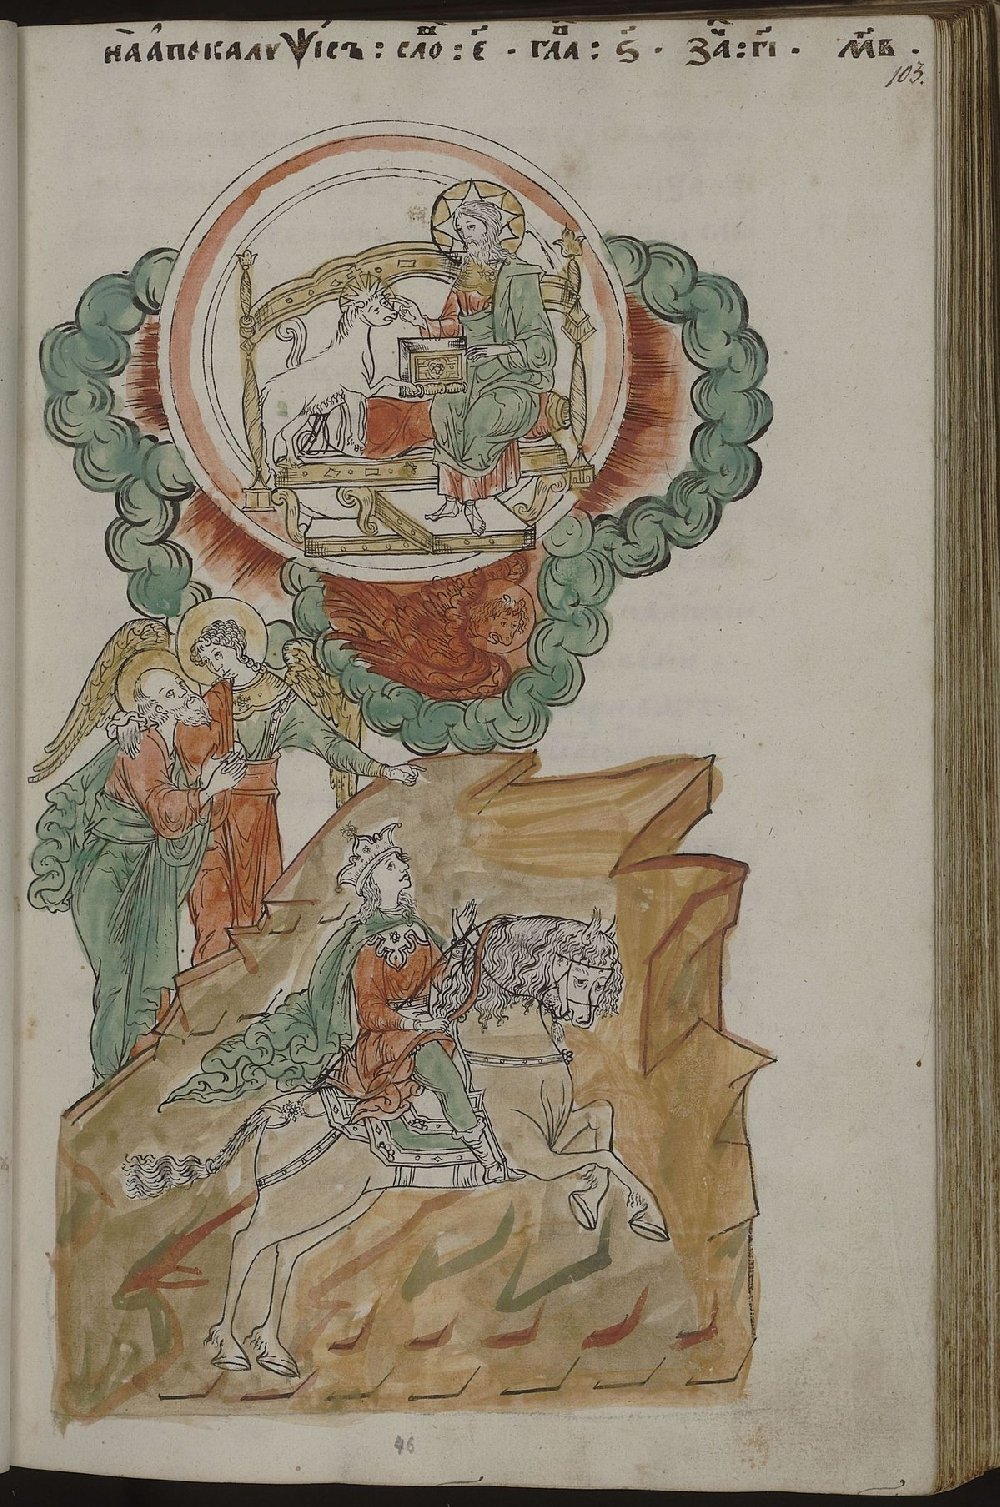 на апокалѱїсъ : сло : є҃ · гла : ѕ҃ · за : гі · мв ·
103.
46